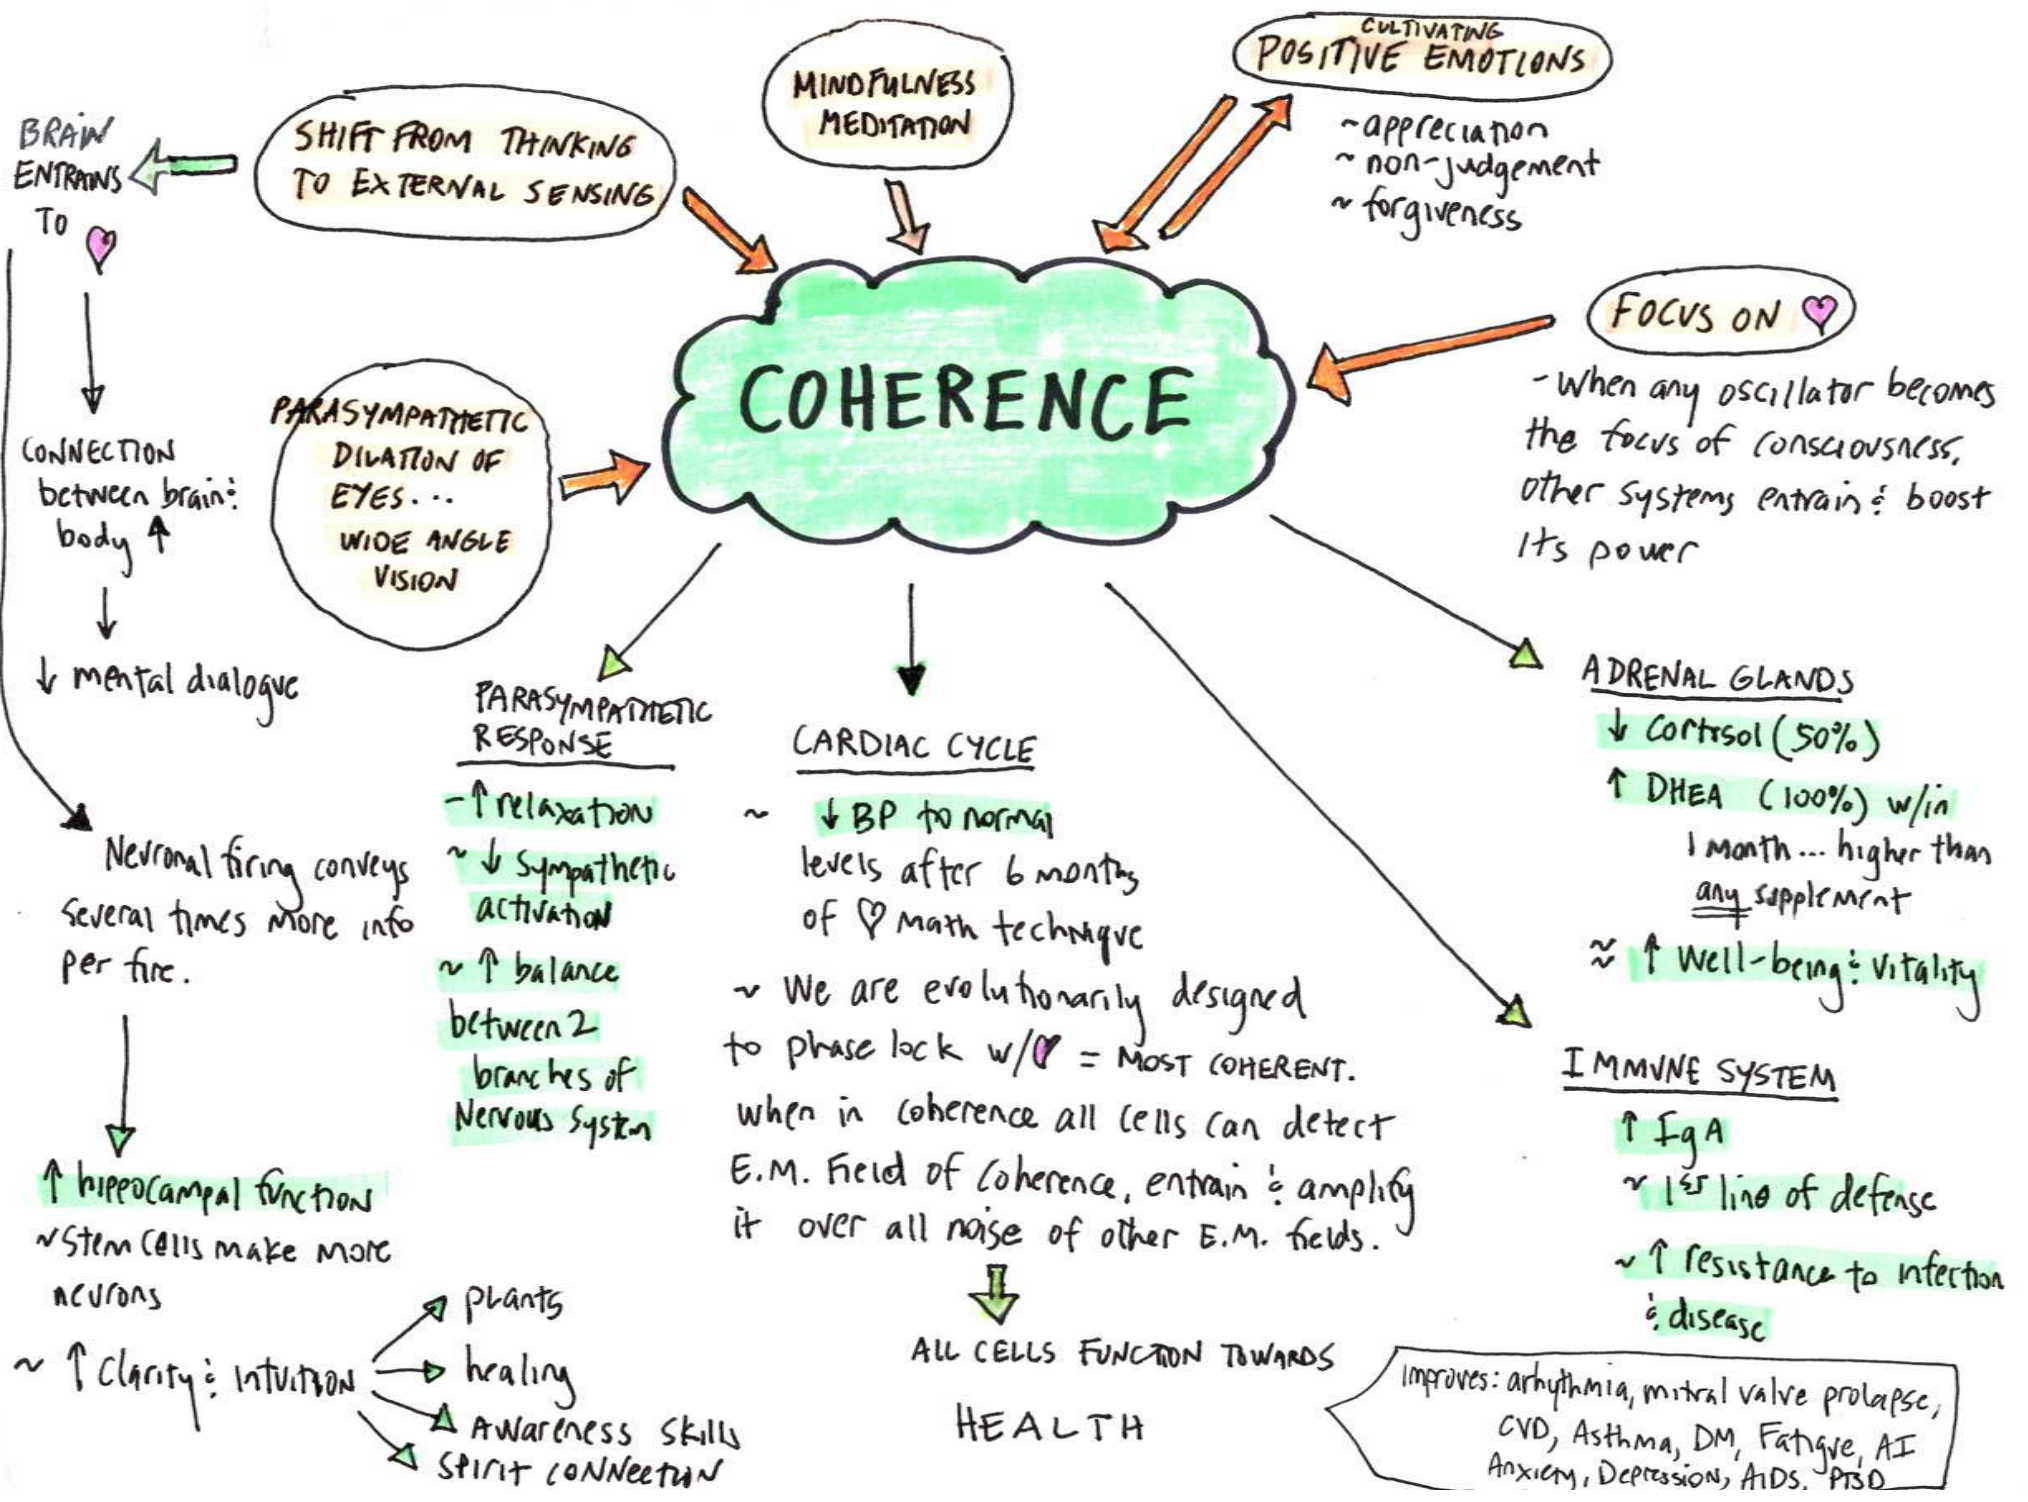 CULTIVATING
POSITIVE EMOTIONS
~appreciation
~ non-judgement
~ forgiveness
MINDFULNESS
MEDITATION
SHIFT FROM THINKING
TO EXTERNAL SENSING
BRAIN
ENTRAINS
TO
FOCUS ON
-When any oscillator becomes
the focus of consciousness,
other systems entrain & boost
its power
COHERENCE
PARASYMPATHETIC
DILATION OF
EYES...
WIDE ANGLE
VISION
CONNECTION
between brain &
body ↑
↓ mental dialogue
Neuronal firing conveys
several times more info
per fire.
↑ hippocampal function
~Stem cells make more
neurons
~ ↑ Clarity & intuition
plants
healing
Awareness skills
SPIRIT CONNECTION
PARASYMPATHETIC
RESPONSE
-↑ relaxation
~ ↓ sympathetic
activation
~ ↑ balance
between 2
branches of
Nervous System
CARDIAC CYCLE
~ ↓ BP to normal
levels after 6 months
of ♡ math technique
~ We are evolutionarily designed
to phase lock w/♥ = MOST COHERENT.
when in coherence all cells can detect
E.M. Field of coherence, entrain & amplify
it over all noise of other E.M. fields.
ALL CELLS FUNCTION TOWARDS
HEALTH
ADRENAL GLANDS
↓ Cortisol (50%)
↑ DHEA (100%) w/in
1 month... higher than
any supplement
≈ ↑ Well-being & Vitality
IMMUNE SYSTEM
↑ IgA
~ 1st line of defense
~ ↑ resistance to infection
& disease
Improves: arhythmia, mitral valve prolapse,
CVD, Asthma, DM, Fatigue, AI
Anxiety, Depression, AIDS, PTSD